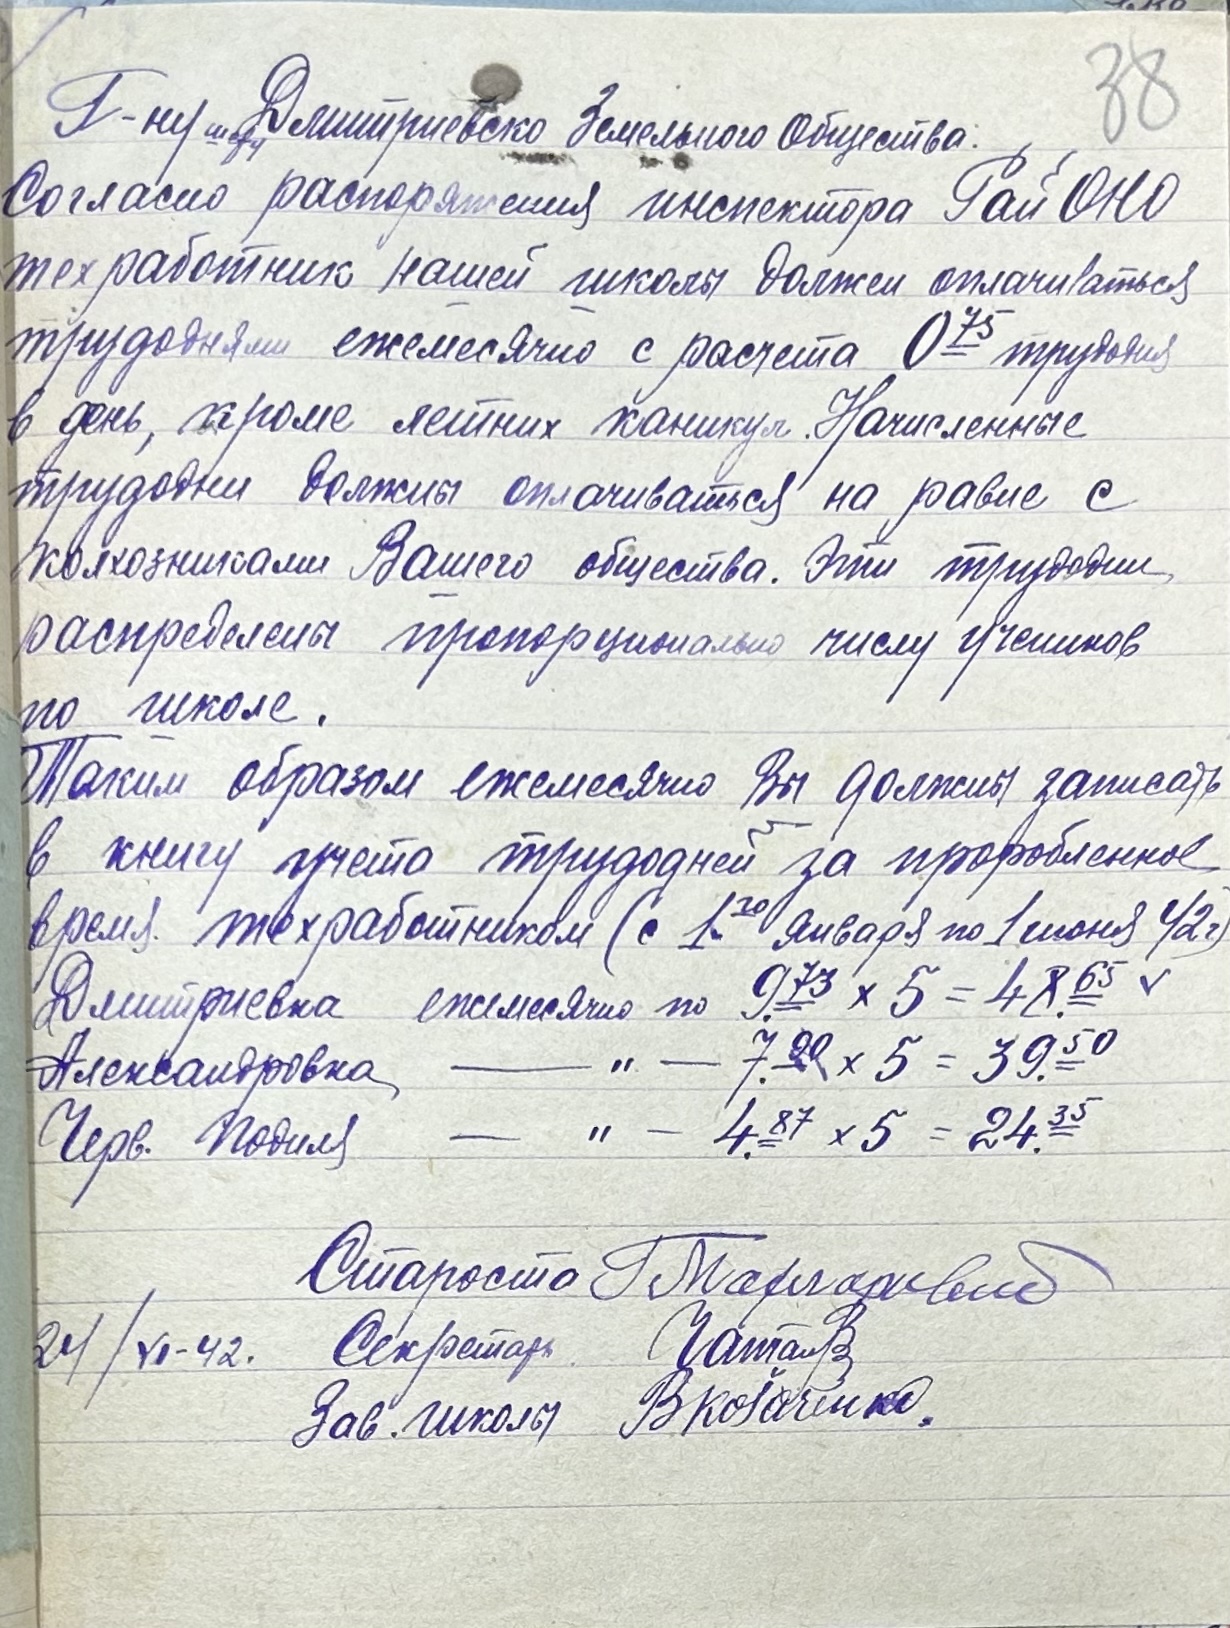 38
Г-ну шефу Дмитриевско Земельного Общества.
Согласно распоряжения инспектора РайОНО
техработник нашей школы должен оплачиваться
трудоднями ежемесячно с расчета 0 75 трудодня
в день, кроме летних каникул. Начисленные
трудодни должны оплачиваться на равне с
колхозниками Вашего общества. Эти трудодни
распределены пропорционально числу учеников
по школе.
Таким образом ежемесячно Вы должны записать
в книгу учета трудодней за проробленное
время техработником (с 1го января по 1 июня 42 г)
Дмитриевка ежемесячно по 9.73 x 5 = 48.65 ✓
Александровка —— " — 7.90 x 5 = 39.50
Черв. Подиля — " — 4.87 x 5 = 24.35
Староста
24/VI-42. Секретарь
Зав. школы В Косаченко.